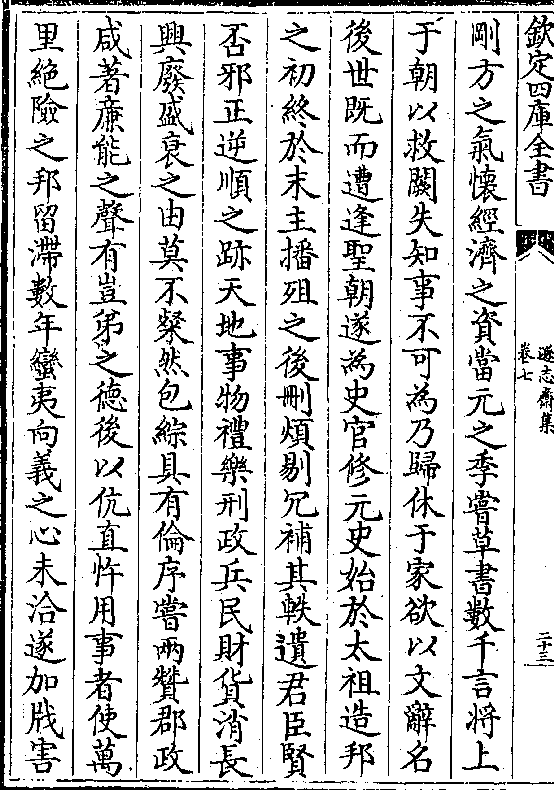 欽定四庫全書
遜志齋集
卷七
二十三
剛方之氣懷經濟之資當元之季嘗草書數千言將上
于朝以救闕失知事不可為乃歸休于家欲以文辭名
後世既而遭逢聖朝遂為史官修元史始於太祖造邦
之初終於末主播殂之後刪煩剔冗補其軼遺君臣賢
否邪正逆順之跡天地事物禮樂刑政兵民財貨消長
興廢盛衰之由莫不粲然包綜具有倫序嘗兩贊郡政
咸著廉能之聲有豈弟之德後以伉直忤用事者使萬
里絶險之邦留滯數年蠻夷向義之心未洽遂加戕害